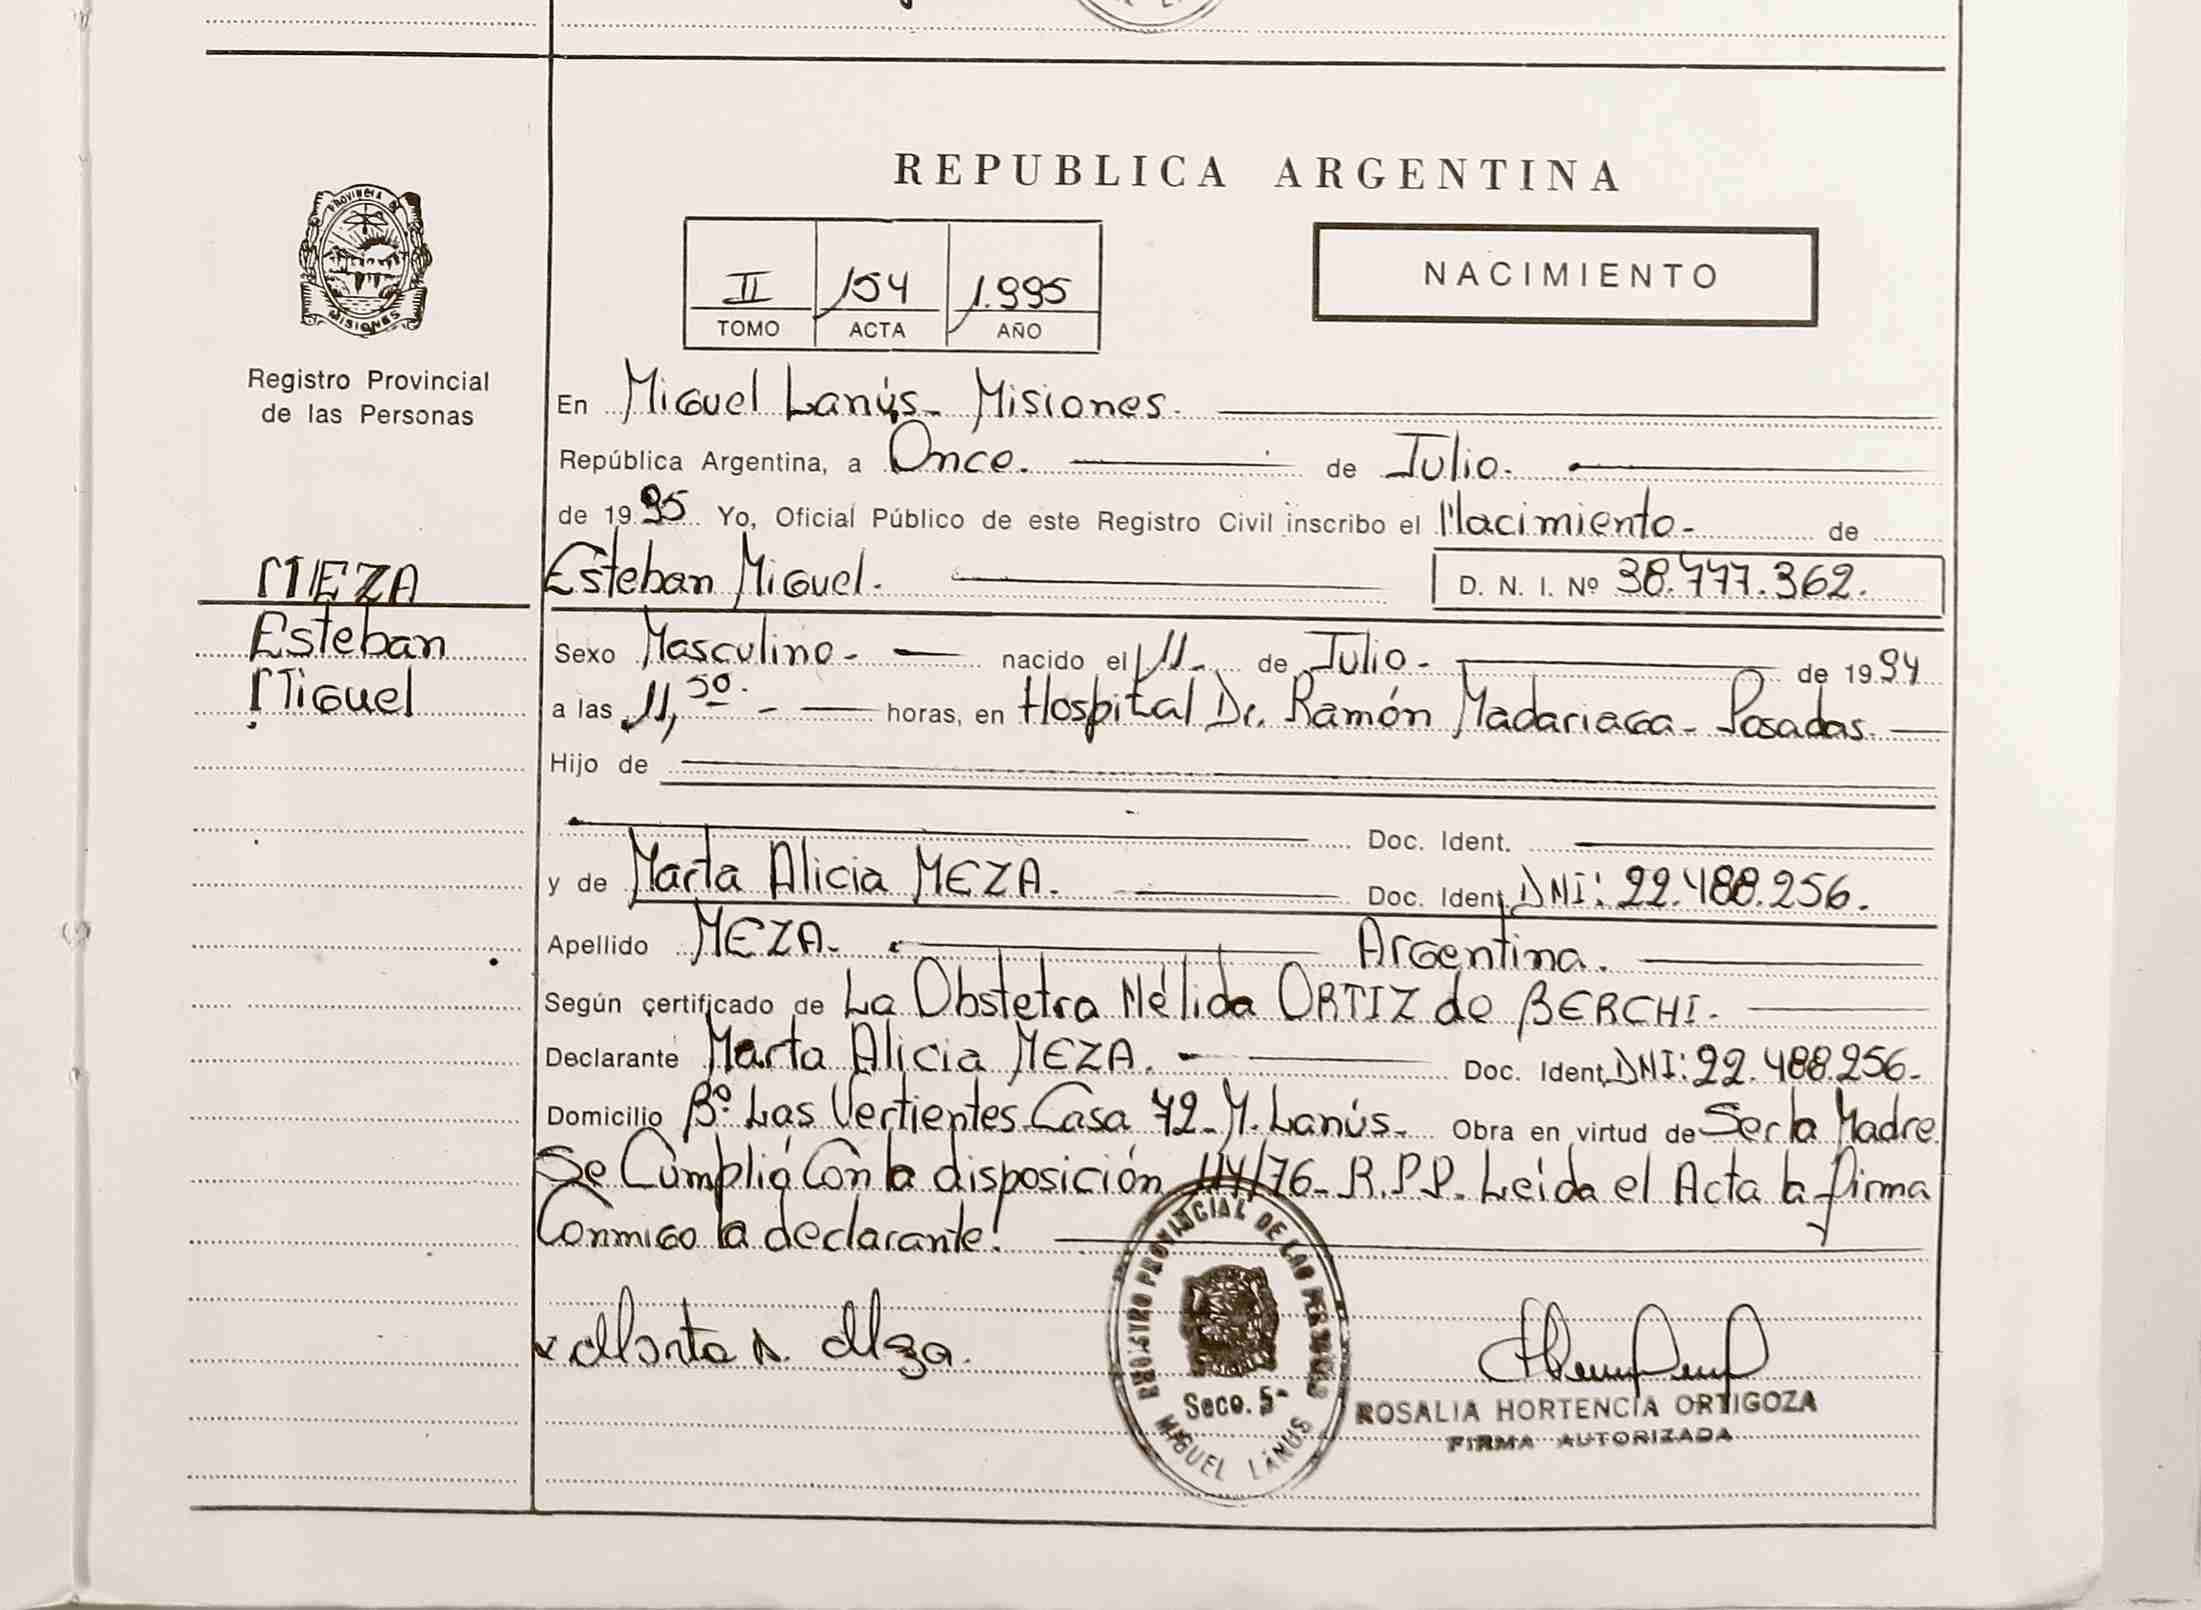 REPUBLICA ARGENTINA
PROVINCIA DE
MISIONES
Registro Provincial
de las Personas
II 154 1.995
TOMO ACTA AÑO
NACIMIENTO
En Miguel Lanús - Misiones.
República Argentina, a Once. de Julio.
de 1995 Yo, Oficial Público de este Registro Civil inscribo el Nacimiento - de
MEZA
Esteban
Miguel
Esteban Miguel. D. N. I. Nº 38.777.362.
Sexo Masculino - nacido el 11 - de Julio - de 1994
a las 11,50. - horas, en Hospital Dr. Ramón Madariaga - Posadas.
Hijo de
Doc. Ident.
y de Marta Alicia MEZA. Doc. Ident. DNI: 22.488.256.
Apellido MEZA. Argentina.
Según certificado de La Obstetra Nélida ORTIZ de BERCHI.
Declarante Marta Alicia MEZA. Doc. Ident. DNI: 22.488.256.
Domicilio Bº Las Vertientes Casa 72 - M. Lanús. Obra en virtud de Ser la Madre
Se Cumplió Con la disposición /76 - R.P.P. Leída el Acta la firma
Conmigo la declarante.
x Marta A. Meza.
REGISTRO PROVINCIAL DE LAS PERSONAS
Secc. 5ª
MIGUEL LANUS
ROSALIA HORTENCIA ORTIGOZA
FIRMA AUTORIZADA